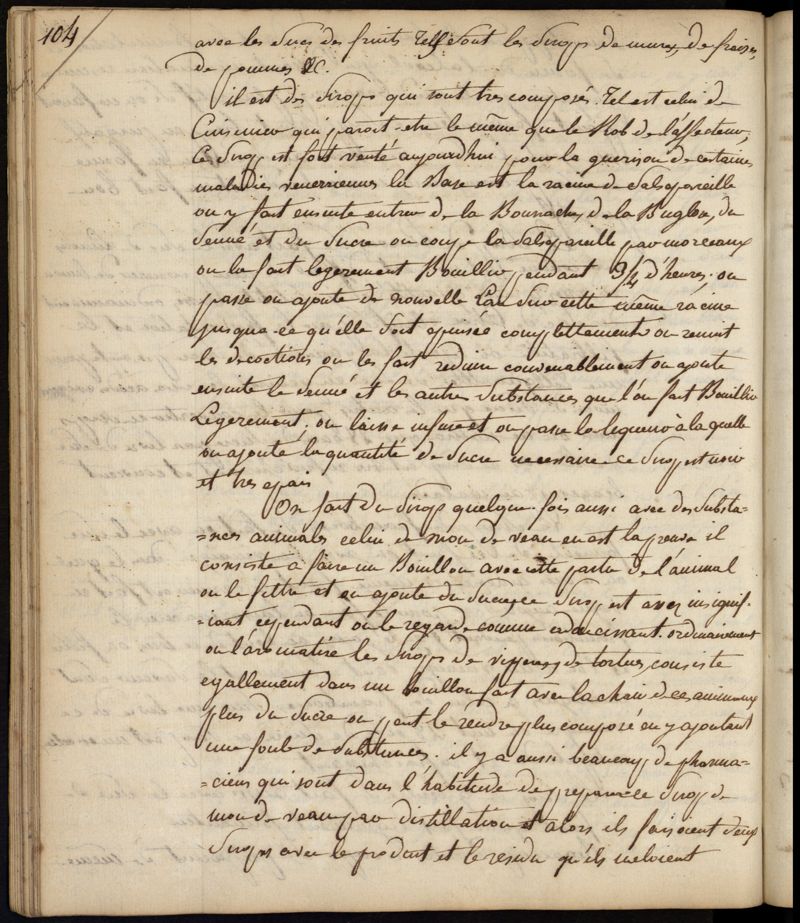 104
avec les sucs des fruits Tels sont les Sirops de mures, de fraises,
de pommes &c.
il est des Sirops qui sont tres composés. Tel est celui de
Cuisinier qui parait etre le même que le Rob de l'affecteur,
Ce Sirop est fort venté aujourdhui pour la guerison de certaines
maladies veneriennes la Base est la racine de Salsepareille
on y fait ensuite entrer de la Bourrache, de la Buglose, du
Senné et du Sucre on coupe la Salsepareille par morceaux
on la fait legerement Bouillir pendant 3/4 d'heures; on
passe on ajoute de nouvelle Eau sur cette même racine
jusqua ce qu'elle soit epuisée complettement on reunit
les decoctions on les fait reduire convenablement on ajoute
ensuite le Senné et les autres Substances que l'on fait Bouillir
Legerement, on laisse infuser et on passe la liqueur à la quelle
on ajoute la quantité de Sucre necessaire ce Sirop est noir
et tres epais
On fait du Sirop quelque fois aussi avec des Substa-
=nces animales celui de mou de veau en est la preuve il
consiste a faire un Bouillon avec cette partie de l'animal
on le filtre et on ajoute du Sucre ce Sirop est assez insignif-
=iant cependant on le regarde comme adoucissant. ordinairement
on l'aromatise les Sirops de viperes, de tortues, consiste
egallement dans un bouillon fait avec la chair de ces animaux
plus du Sucre on peut le rendre plus composé en y ajoutant
une foule de Substances. il y a aussi beaucoup de pharma-
=ciens qui sont dans l'habitude de preparer ce Sirop de
mou de veau par distillation et alors ils faisoient deux
Sirops avec le produit et le residu qu'ils meloient